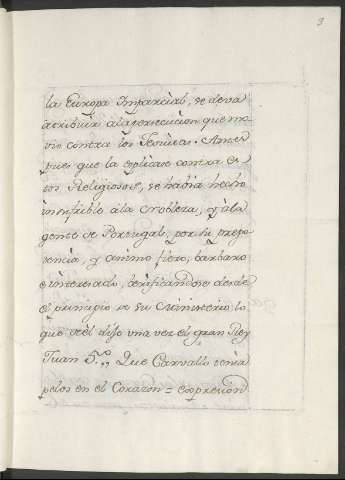 3
la Europa Imparcial, se deva
atribuir ala persecucion que mo-
vio contra los Jesuitas. Antes
pues que la esplicase contra es-
tos Religiosos, se habia hecho
insufrible àla Nobleza, y àla
gente de Portugal, por su prepo-
tencia, y animo fiero, barbaro
è interesado, berificandose desde
el principio de su Ministerio lo
que de èl dijo vna vez el gran Rey
Juan 5.º, Que Carvallo tenia
pelos en el Corazon = expresion